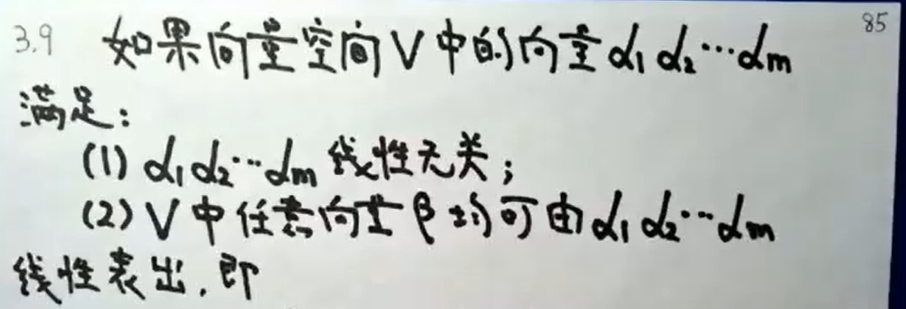 3.9 如果向量空间V中的向量α₁ α₂…αm
85
满足:
(1) α₁ α₂…αm 线性无关;
(2) V中任意向量β均可由α₁ α₂…αm
线性表出,即